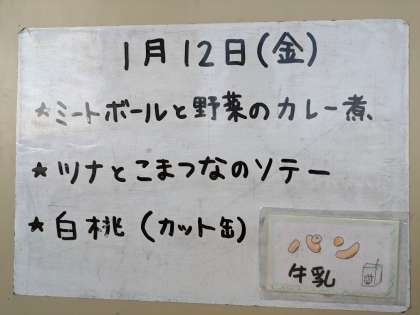 1月12日(金)
★ミートボールと野菜のカレー煮、
★ツナとこまつなのソテー
★白桃(カット缶)
パン
牛乳